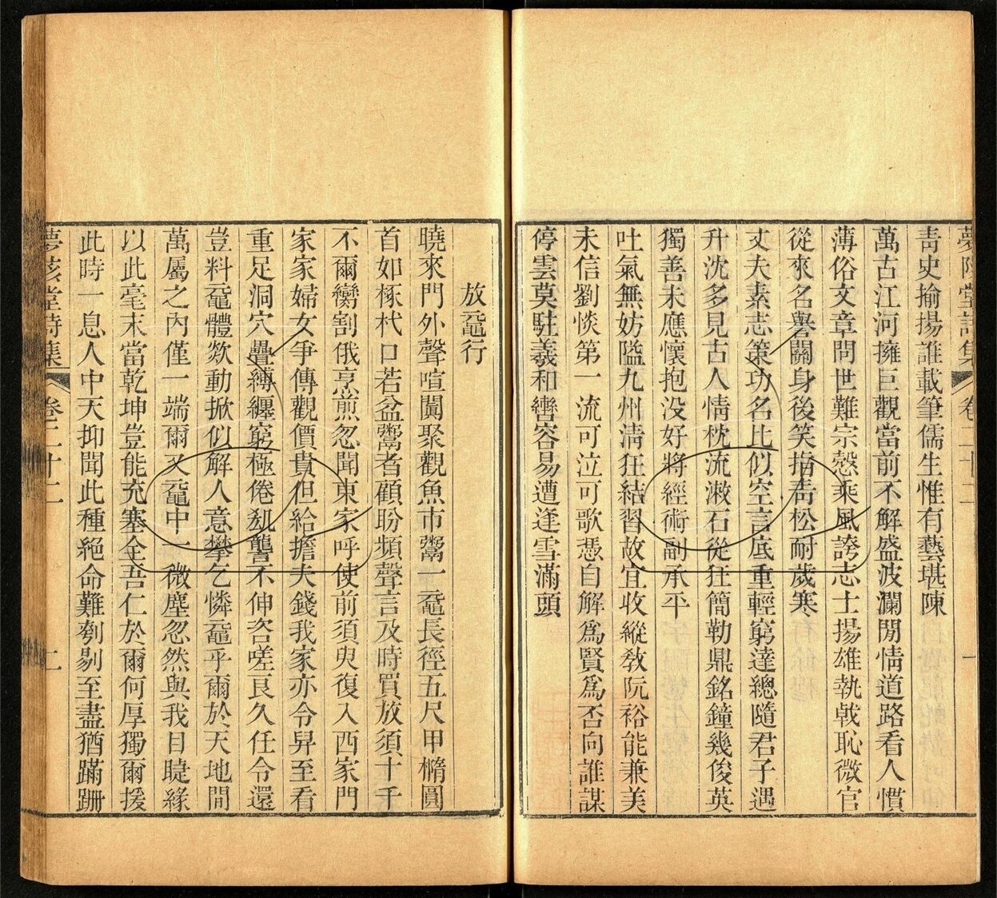 夢陔堂詩集 卷二十二 一
青史揄揚誰載筆儒生惟有藝堪陳
萬古江河擁巨觀當前不解盛波瀾閒情道路看人慣
薄俗文章問世難宗愨乘風誇志士揚雄執戟恥微官
從來名譽關身後笑指青松耐歲寒
丈夫素志策功名比似空言底重輕窮達總隨君子遇
升沈多見古人情枕流漱石從狂簡勒鼎銘鐘幾俊英
獨善未應懷抱没好將經術副承平
吐氣無妨隘九州清狂結習故宜收縱教阮裕能兼美
未信劉惔第一流可泣可歌憑自解爲賢爲否向誰謀
停雲莫駐羲和轡容易遭逢雪滿頭
放黿行
曉來門外聲喧闐聚觀魚市鬻一黿長徑五尺甲橢圓
首如椓杙口若盆鬻者顧盼頻聲言及時買放須十千
不爾臠割俄烹煎忽聞東家呼使前須臾復入西家門
家家婦女爭傳觀價貴但給擔夫錢我家亦令舁至看
重足洞穴疊縛纏窮極倦𠜂讋不伸咨嗟良久任令還
豈料黿體欻動掀似解人意攀乞憐黿乎爾於天地間
萬屬之內僅一端爾又黿中一微塵忽然與我目睫緣
以此毫末當乾坤豈能充塞全吾仁於爾何厚獨爾援
此時一息人中天抑聞此種絕命難刳剔至盡猶蹣跚
夢陔堂詩集 卷二十二 二